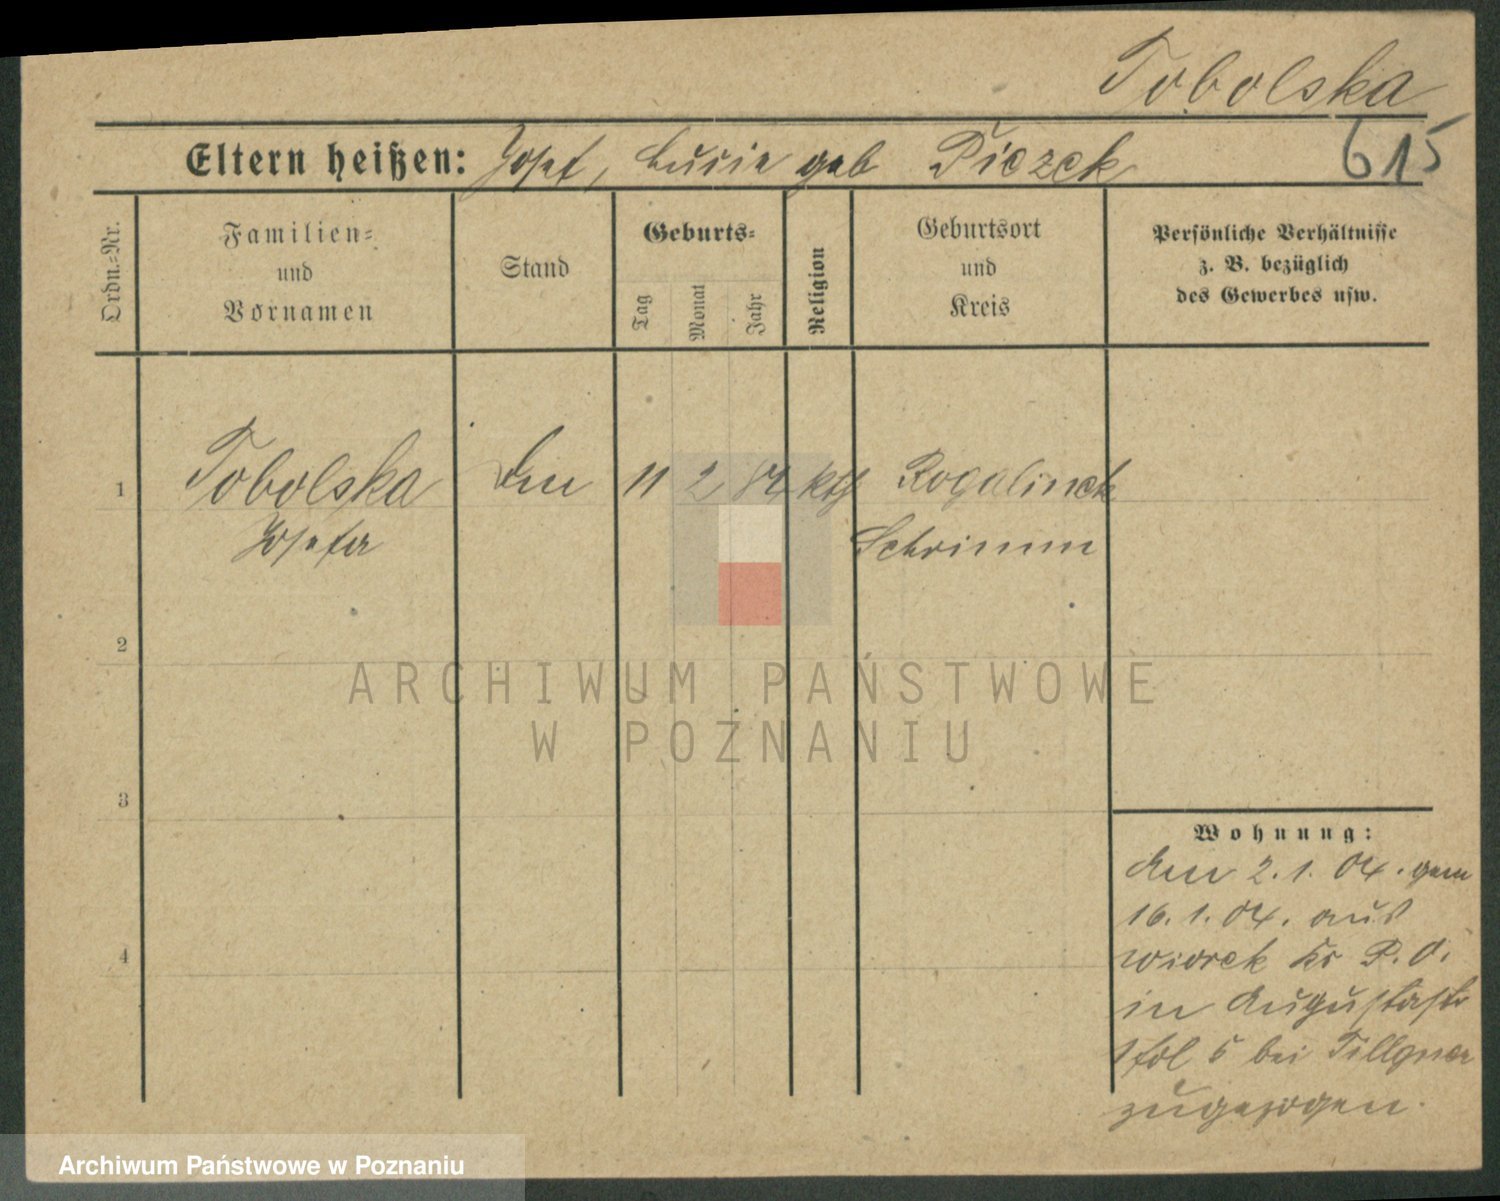 Tobolska
615
Eltern heißen: Josef, Lucie geb Piczek
Ordn.-Nr.
Familien-
und
Vornamen
Stand
Geburts-
Tag
Monat
Jahr
Religion
Geburtsort
und
Kreis
Persönliche Verhältnisse
z. B. bezüglich
des Gewerbes usw.
1 Tobolska 11 2 84 kth Rogalinek
Josefa Schrimm
2
3
4
Wohnung:
den 2. 1. 04. gem
16. 1. 04. aus
Wiorek Kr P. O.
in Augustastr
5 bei Tillgner
zugezogen.
ARCHIWUM PAŃSTWOWE
W POZNANIU
Archiwum Państwowe w Poznaniu